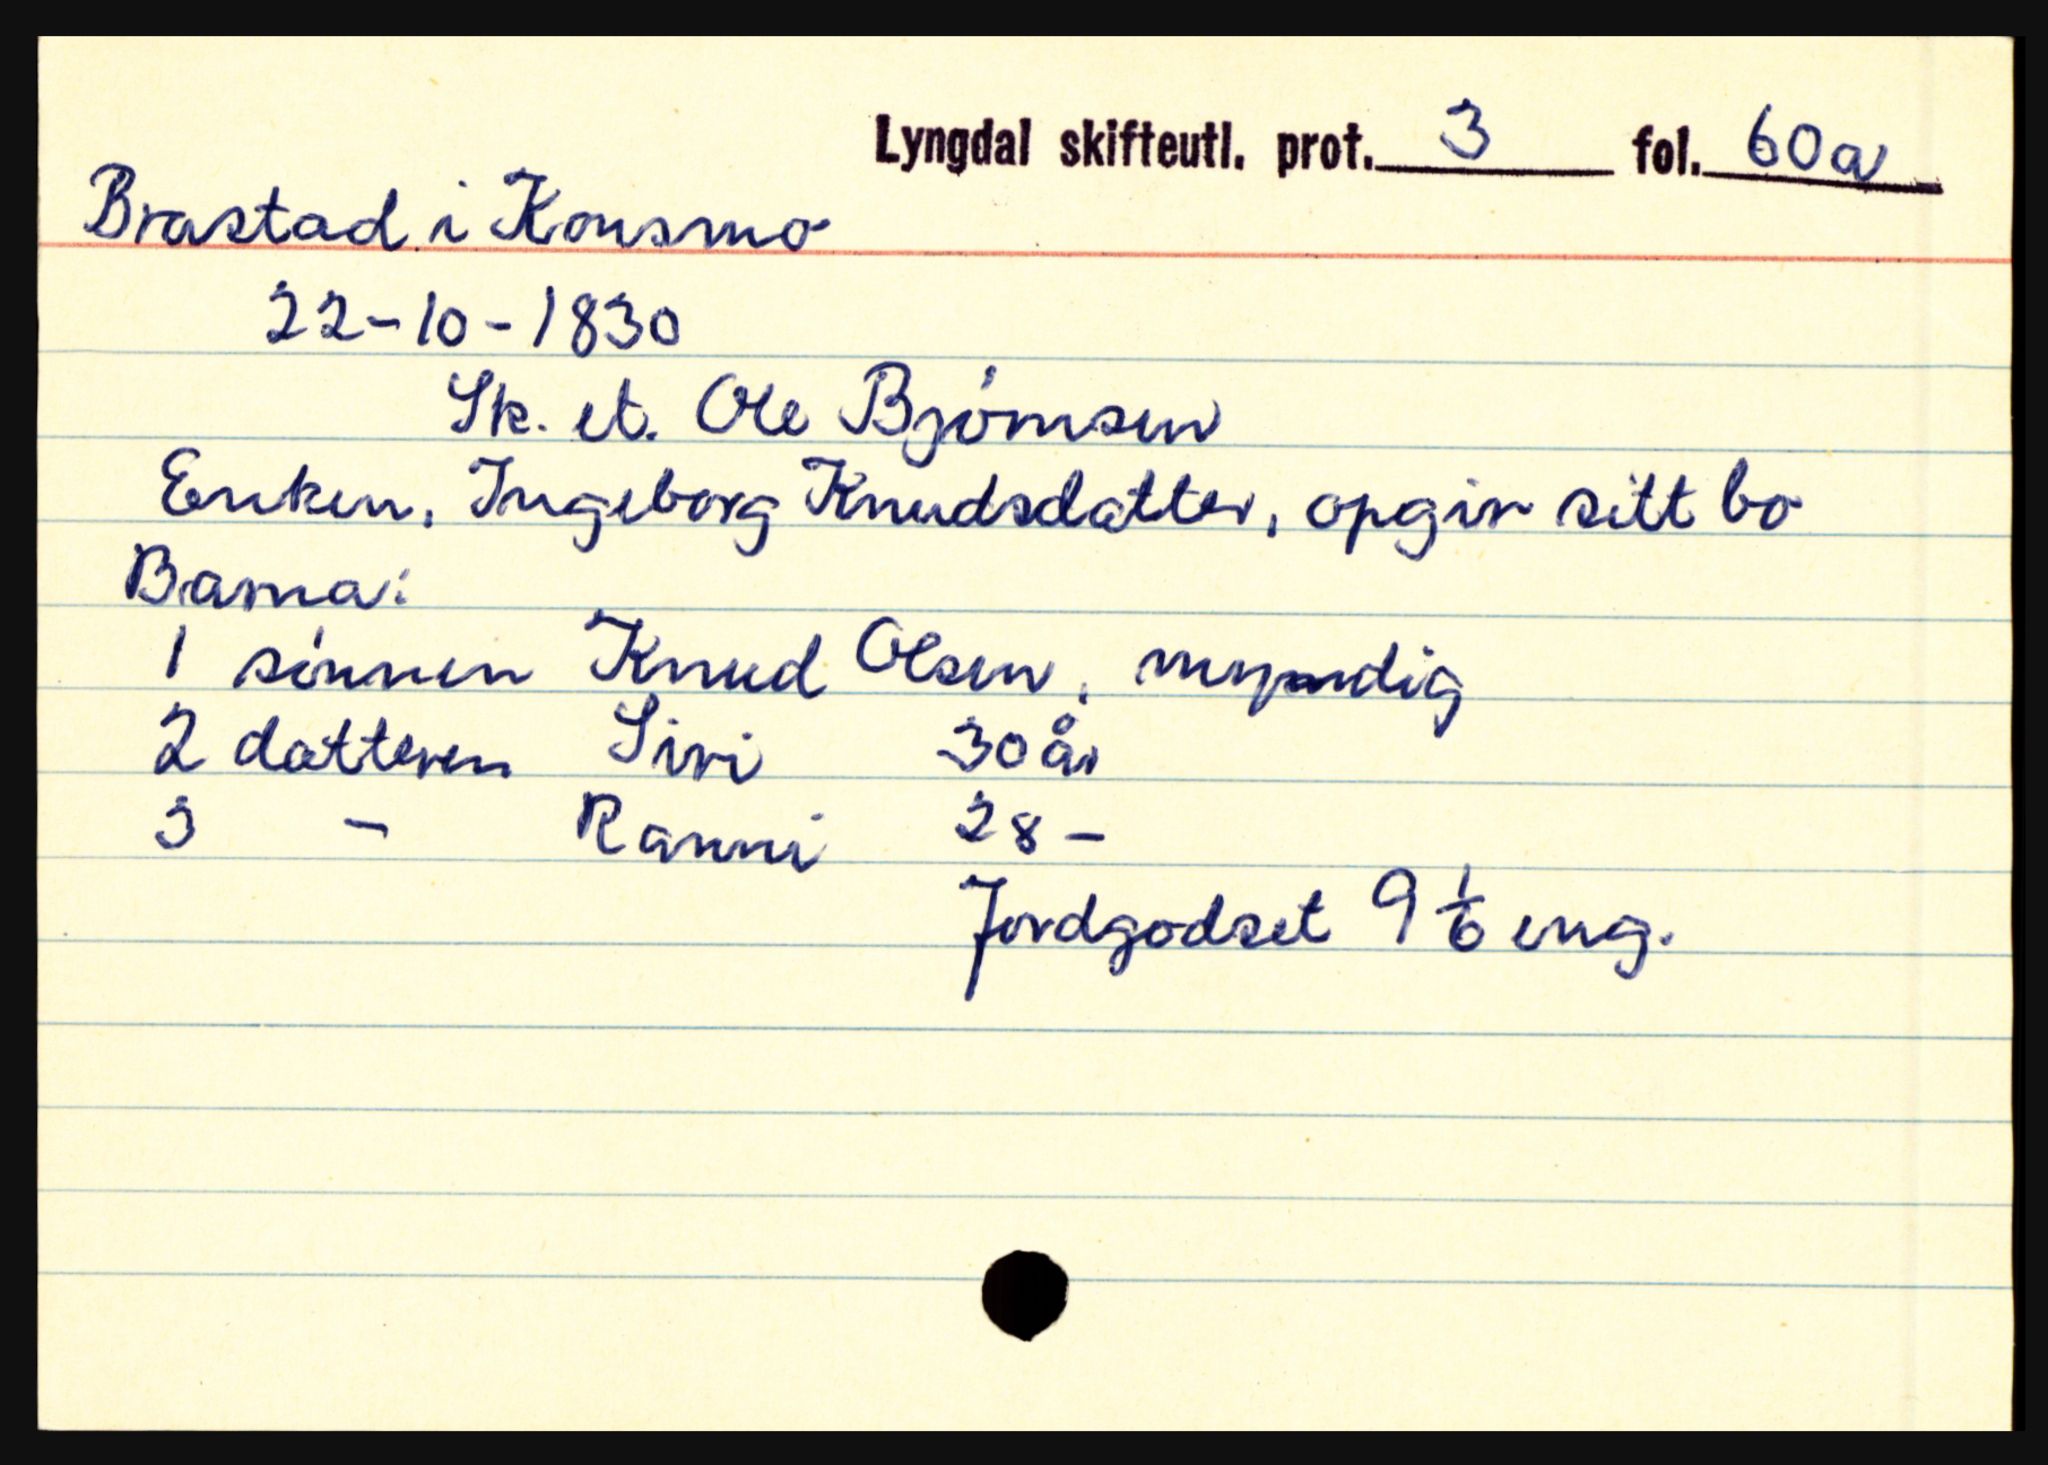 Lyngdal skifteutl. prot. 3 fol. 60a
Brastad i Konsmo
22-10-1830
Sk. et. Ole Bjørnsen
Enken, Ingeborg Knudsdatter, opgir sitt bo
Barna:
1 sønnen Knud Olsen, myndig
2 datteren Siri 30 år
3 - Ranni 28 -
Jordgodset 9 1/6 eng.